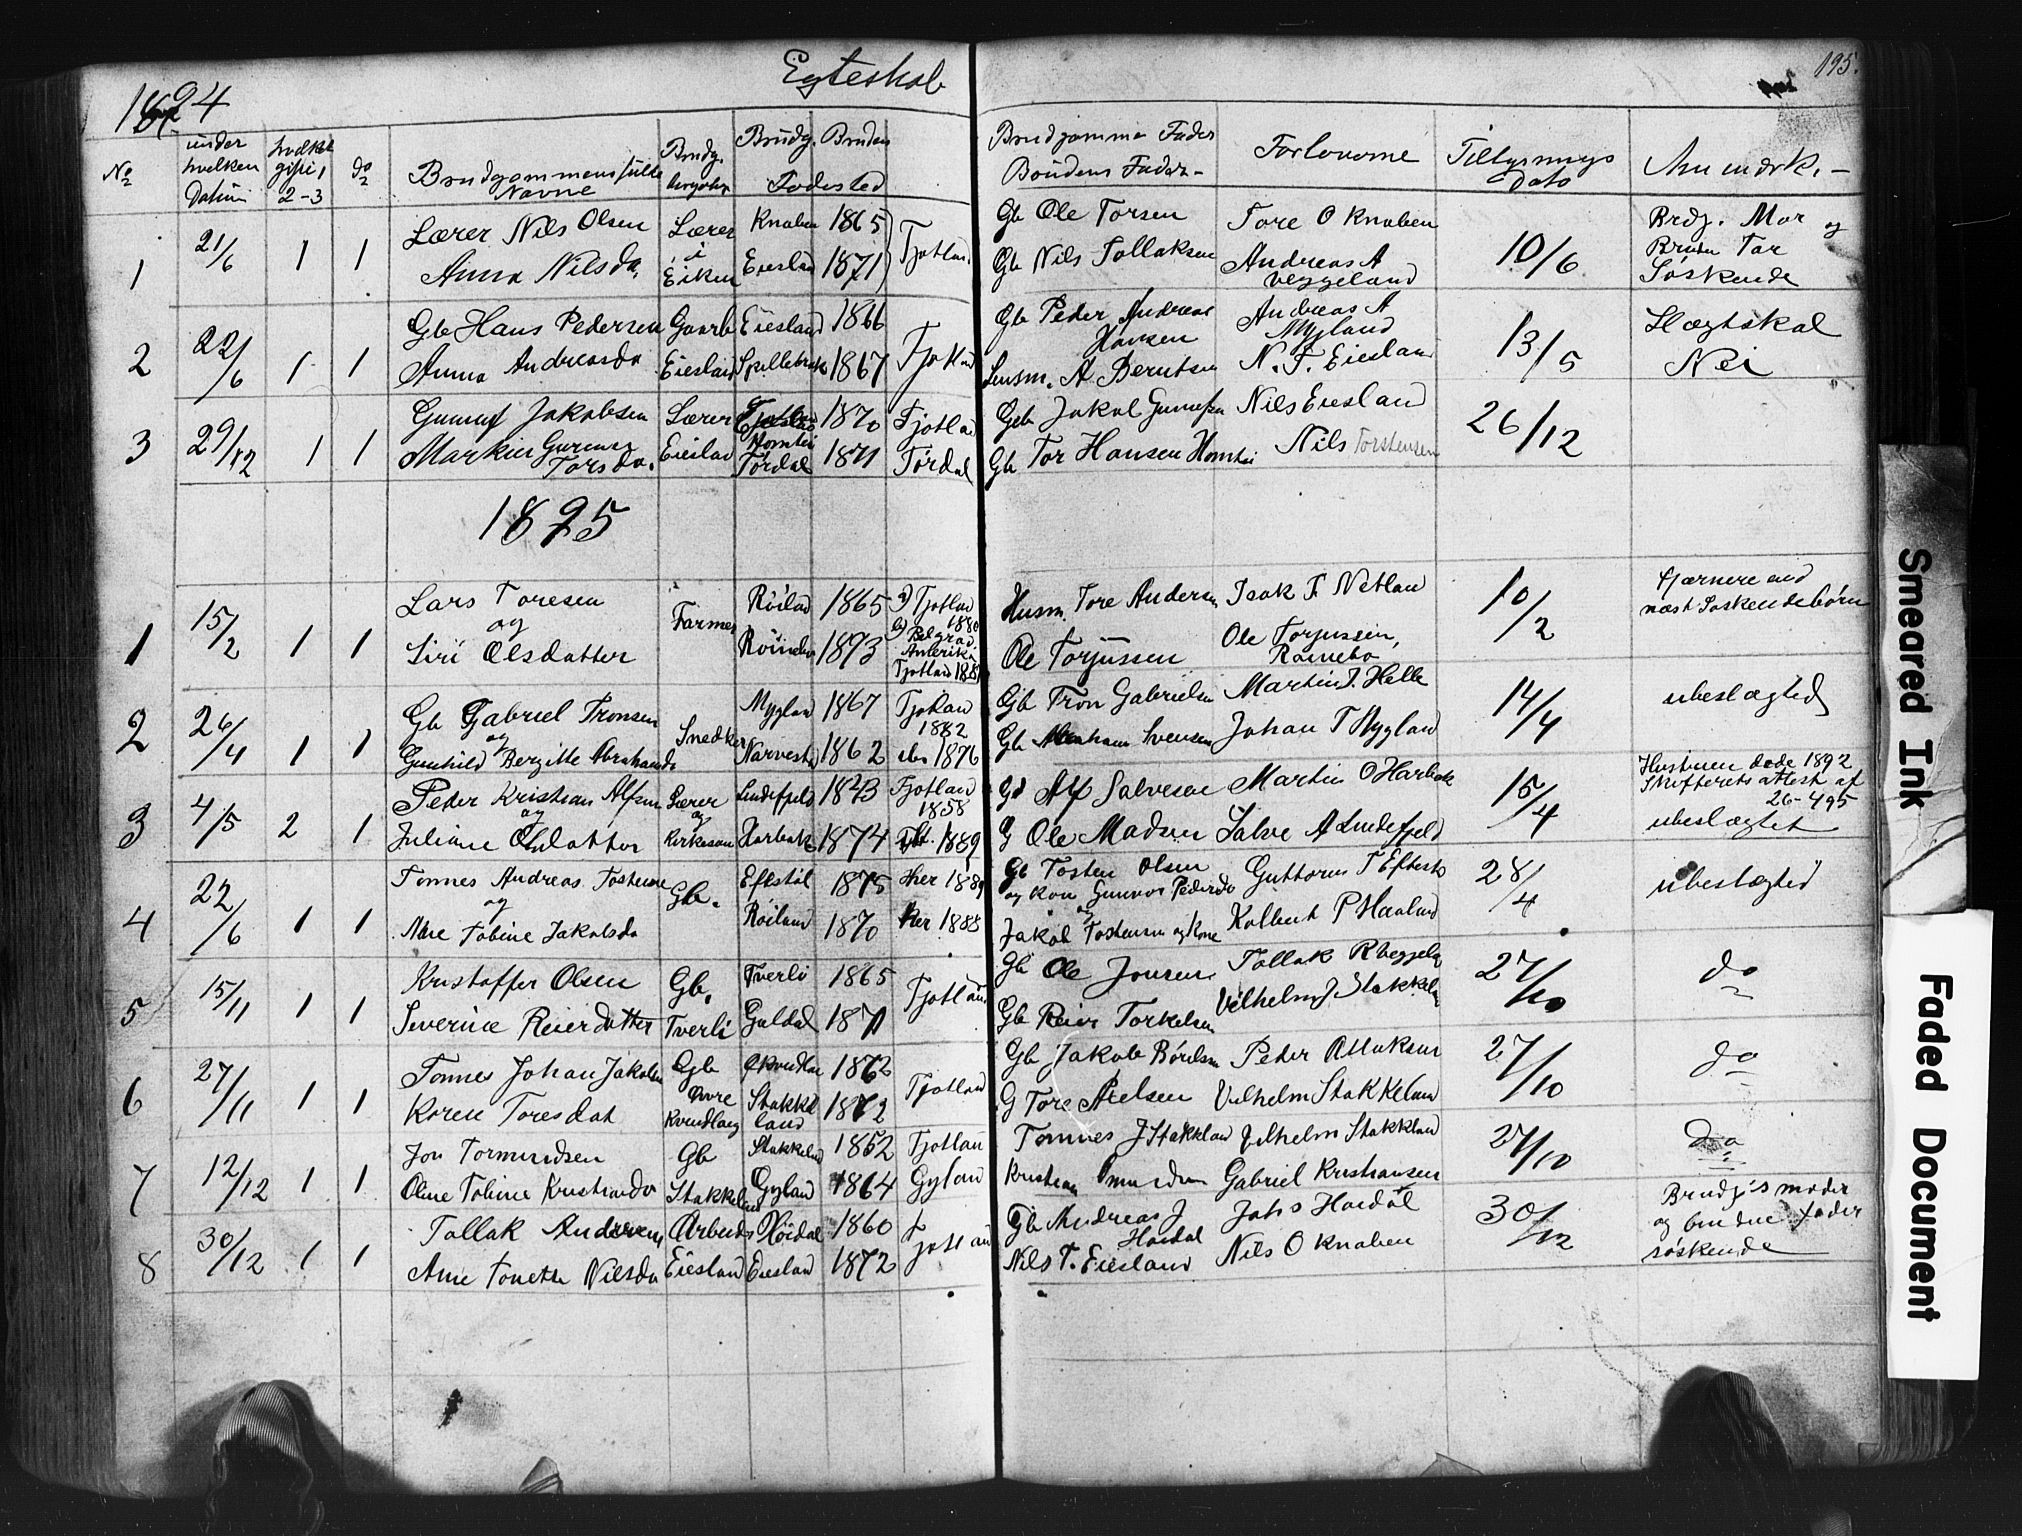 1894
Egteskab
195.
No
under hvilken Datum
hvilket gifte, 2-3
do
Brudgommens fulde Navne
Brudg.
Brudg. Bruden
Fødested
Brudgommens Fader
Brudens Fader
Forloverne
Tillysnings Dato
Anmerk.
1 21/6 1 1
Lærer Nils Olsen
Anna Nilsda.
Lærer i Eiken
Knaben 1865
Eiesland 1871
Fjotland
Gb Ole Torsen
Gb Nils Tollaksen
Tore O Knaben
Andreas A Veggeland
10/6
Brdg. Mor og
Bruden Far
Søskende
2 22/6 1 1
Gb Hans Pedersen
Anna Andreasda
Gaarb Eiesland
Eiesland 1866
Spillebrok 1867
Fjotland
Gb Peder Andreas Hansen
Lensm. A Berntsen
Andreas A Mygland
N. T. Eiesland
13/5
Slægtskab
Nei
3 29/12 1 1
Gunuf Jakobsen
Markin Gurine Torsda.
Lærer Eiesland
1870
Homtei Tørdal 1871
Fjotland
Tørdal
Gb Jakob Gunufsen
Gb Tor Hansen Homtei
Nils Eiesland
Nils Torstensen
26/12
1895
1 15/2 1 1
Lars Toresen
og
Siri Olsdatter
Farmer
Røiland 1865
Røinebo 1873
a) Fjotland 1880
b) Belgrad Amerika
Fjotland
Husm. Tore Andersen
Ole Torjussen
Isak F Netland
Ole Torjussen, Røinebo
10/2
fjærnere end
næst Søskendebørn
2 26/4 1 1
Gb Gabriel Tronsen
og
Gunhild Bergitte Abrahamsda
Snedker
Mygland 1867
Narvestad 1862
Fjotland 1882
1876
Gb Tron Gabrielsen
Gb Abraham Svensen
Martin T. Helle
Johan T Mygland
14/4
ubeslægted
3 4/5 2 1
Peder Kristian Alfsen
og
Juliane Olsdatter
Lærer og Kirkesan
Lindefjeld 1843
Harbak 1874
Fjotland 1858
Fjtl. 1889
Gb Alf Salvesen
G Ole Madsen
Martin O Harbak
Salve A Lindefjeld
15/4
Hustruen døde 1892
Skifterets attest af
26-495
ubeslægtet
4 22/6 1 1
Tonnes Andreas Tostensen
og
Ane Tobine Jakobsda
Gb.
Eftestøl 1875
Røiland 1870
Her 1889
Her 1888
Gb Tosten Olsen
og Kone Gunnor Pedersda
og
Jakob Tostensen og Kone
Guttorm T Eftestø
Kolbent P Haaland
28/4
ubeslægted
5 15/11 1 1
Kristoffer Olsen
Severine Reiersdatter
Gb. Tverli
Tverli 1865
Guldal 1871
Fjotland
Gb Ole Jonsen
Gb Reier Torkelsen
Tollak R Veggela
Vilhelm J. Stakkela
27/10
do
6 27/11 1 1
Tonnes Johan Jakobsen
Karen Toresdat
Gb Øvre Kvindlaug
Økvindlau 1872
Stakkeland 1872
Fjotland
Gb Jakob Børilsen
G Tore Nielsen
Peder Ollaksen
Vilhelm Stakkeland
27/10
do
7 12/12 1 1
Jon Tormundsen
Oline Tobine Kristiansda
Gb Stakkeland
Stakkeland 1852
Gyland 1864
Fjotlan
Gyland
Tonnes J Stakkland
Kristian
Vilhelm Stakkland
Gabriel Kristiansen
27/10
do
8 30/12 1 1
Tollak Andersen
Ane Tonette Nilsda
Arbeids Eiesland
Høidal 1860
Eiesland 1872
Fjotland
Gb Andreas J Høidal
Nils T. Eiesland
Jahs Høidal
Nils O Knaben
30/12
Brudg's moder
og brudne fader
søskende
Smeared Ink
Faded Document